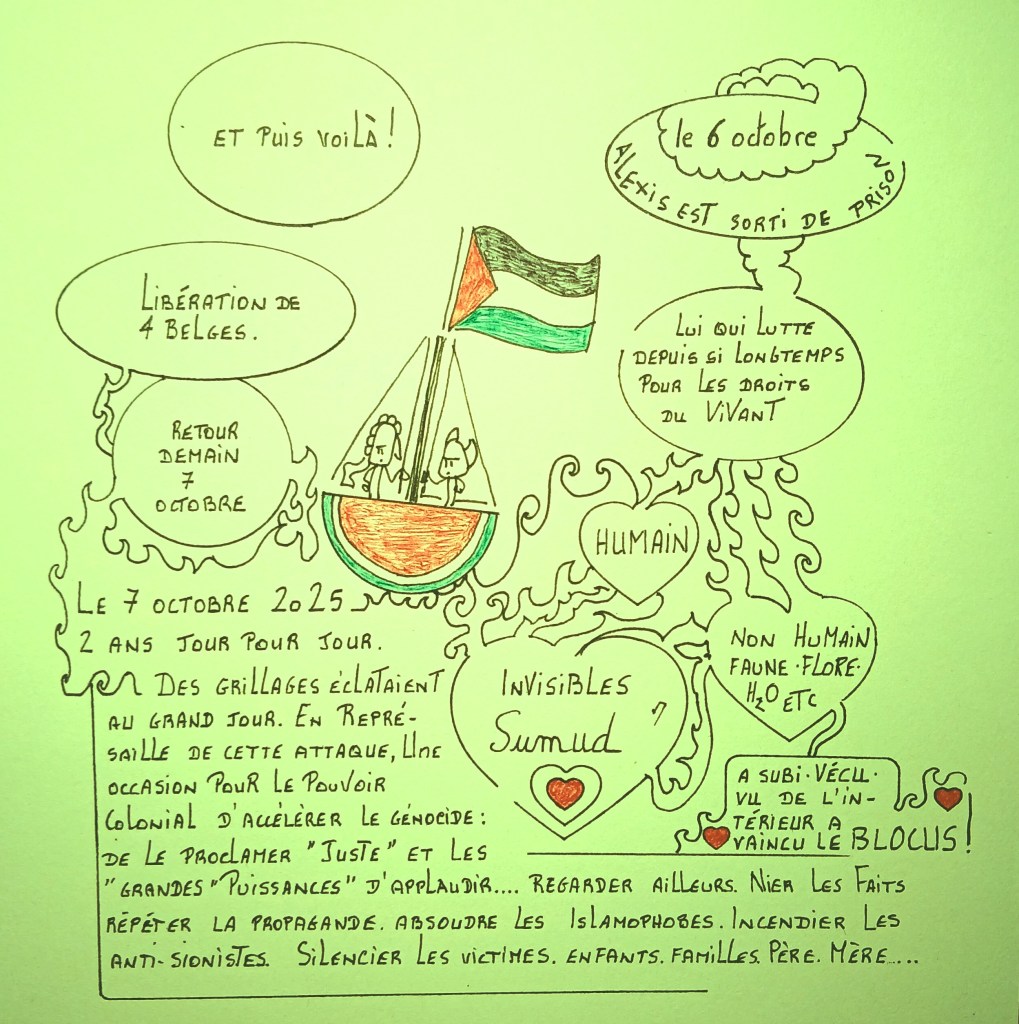 ET PUIS VOILÀ !
le 6 octobre
ALEXIS EST SORTI DE PRISON
LIBÉRATION DE
4 BELGES.
LUI QUI LUTTE
DEPUIS SI LONGTEMPS
POUR LES DROITS
DU VIVANT
RETOUR
DEMAIN
7
OCTOBRE
HUMAIN
NON HUMAIN
FAUNE · FLORE ·
H2O ETC
INVISIBLES
Sumud
A SUBI · VÉCU ·
VU DE L'IN-
TÉRIEUR A
VAINCU LE BLOCUS !
LE 7 OCTOBRE 2025
2 ANS JOUR POUR JOUR.
DES GRILLAGES ÉCLATAIENT
AU GRAND JOUR. EN REPRÉ-
SAILLE DE CETTE ATTAQUE, UNE
OCCASION POUR LE POUVOIR
COLONIAL D'ACCÉLÉRER LE GÉNOCIDE :
DE LE PROCLAMER "JUSTE" ET LES
"GRANDES "PUISSANCES" D'APPLAUDIR.... REGARDER AILLEURS. NIER LES FAITS
RÉPÉTER LA PROPAGANDE. ABSOUDRE LES ISLAMOPHOBES. INCENDIER LES
ANTI-SIONISTES. SILENCIER LES VICTIMES. ENFANTS. FAMILLES. PÈRE. MÈRE.....